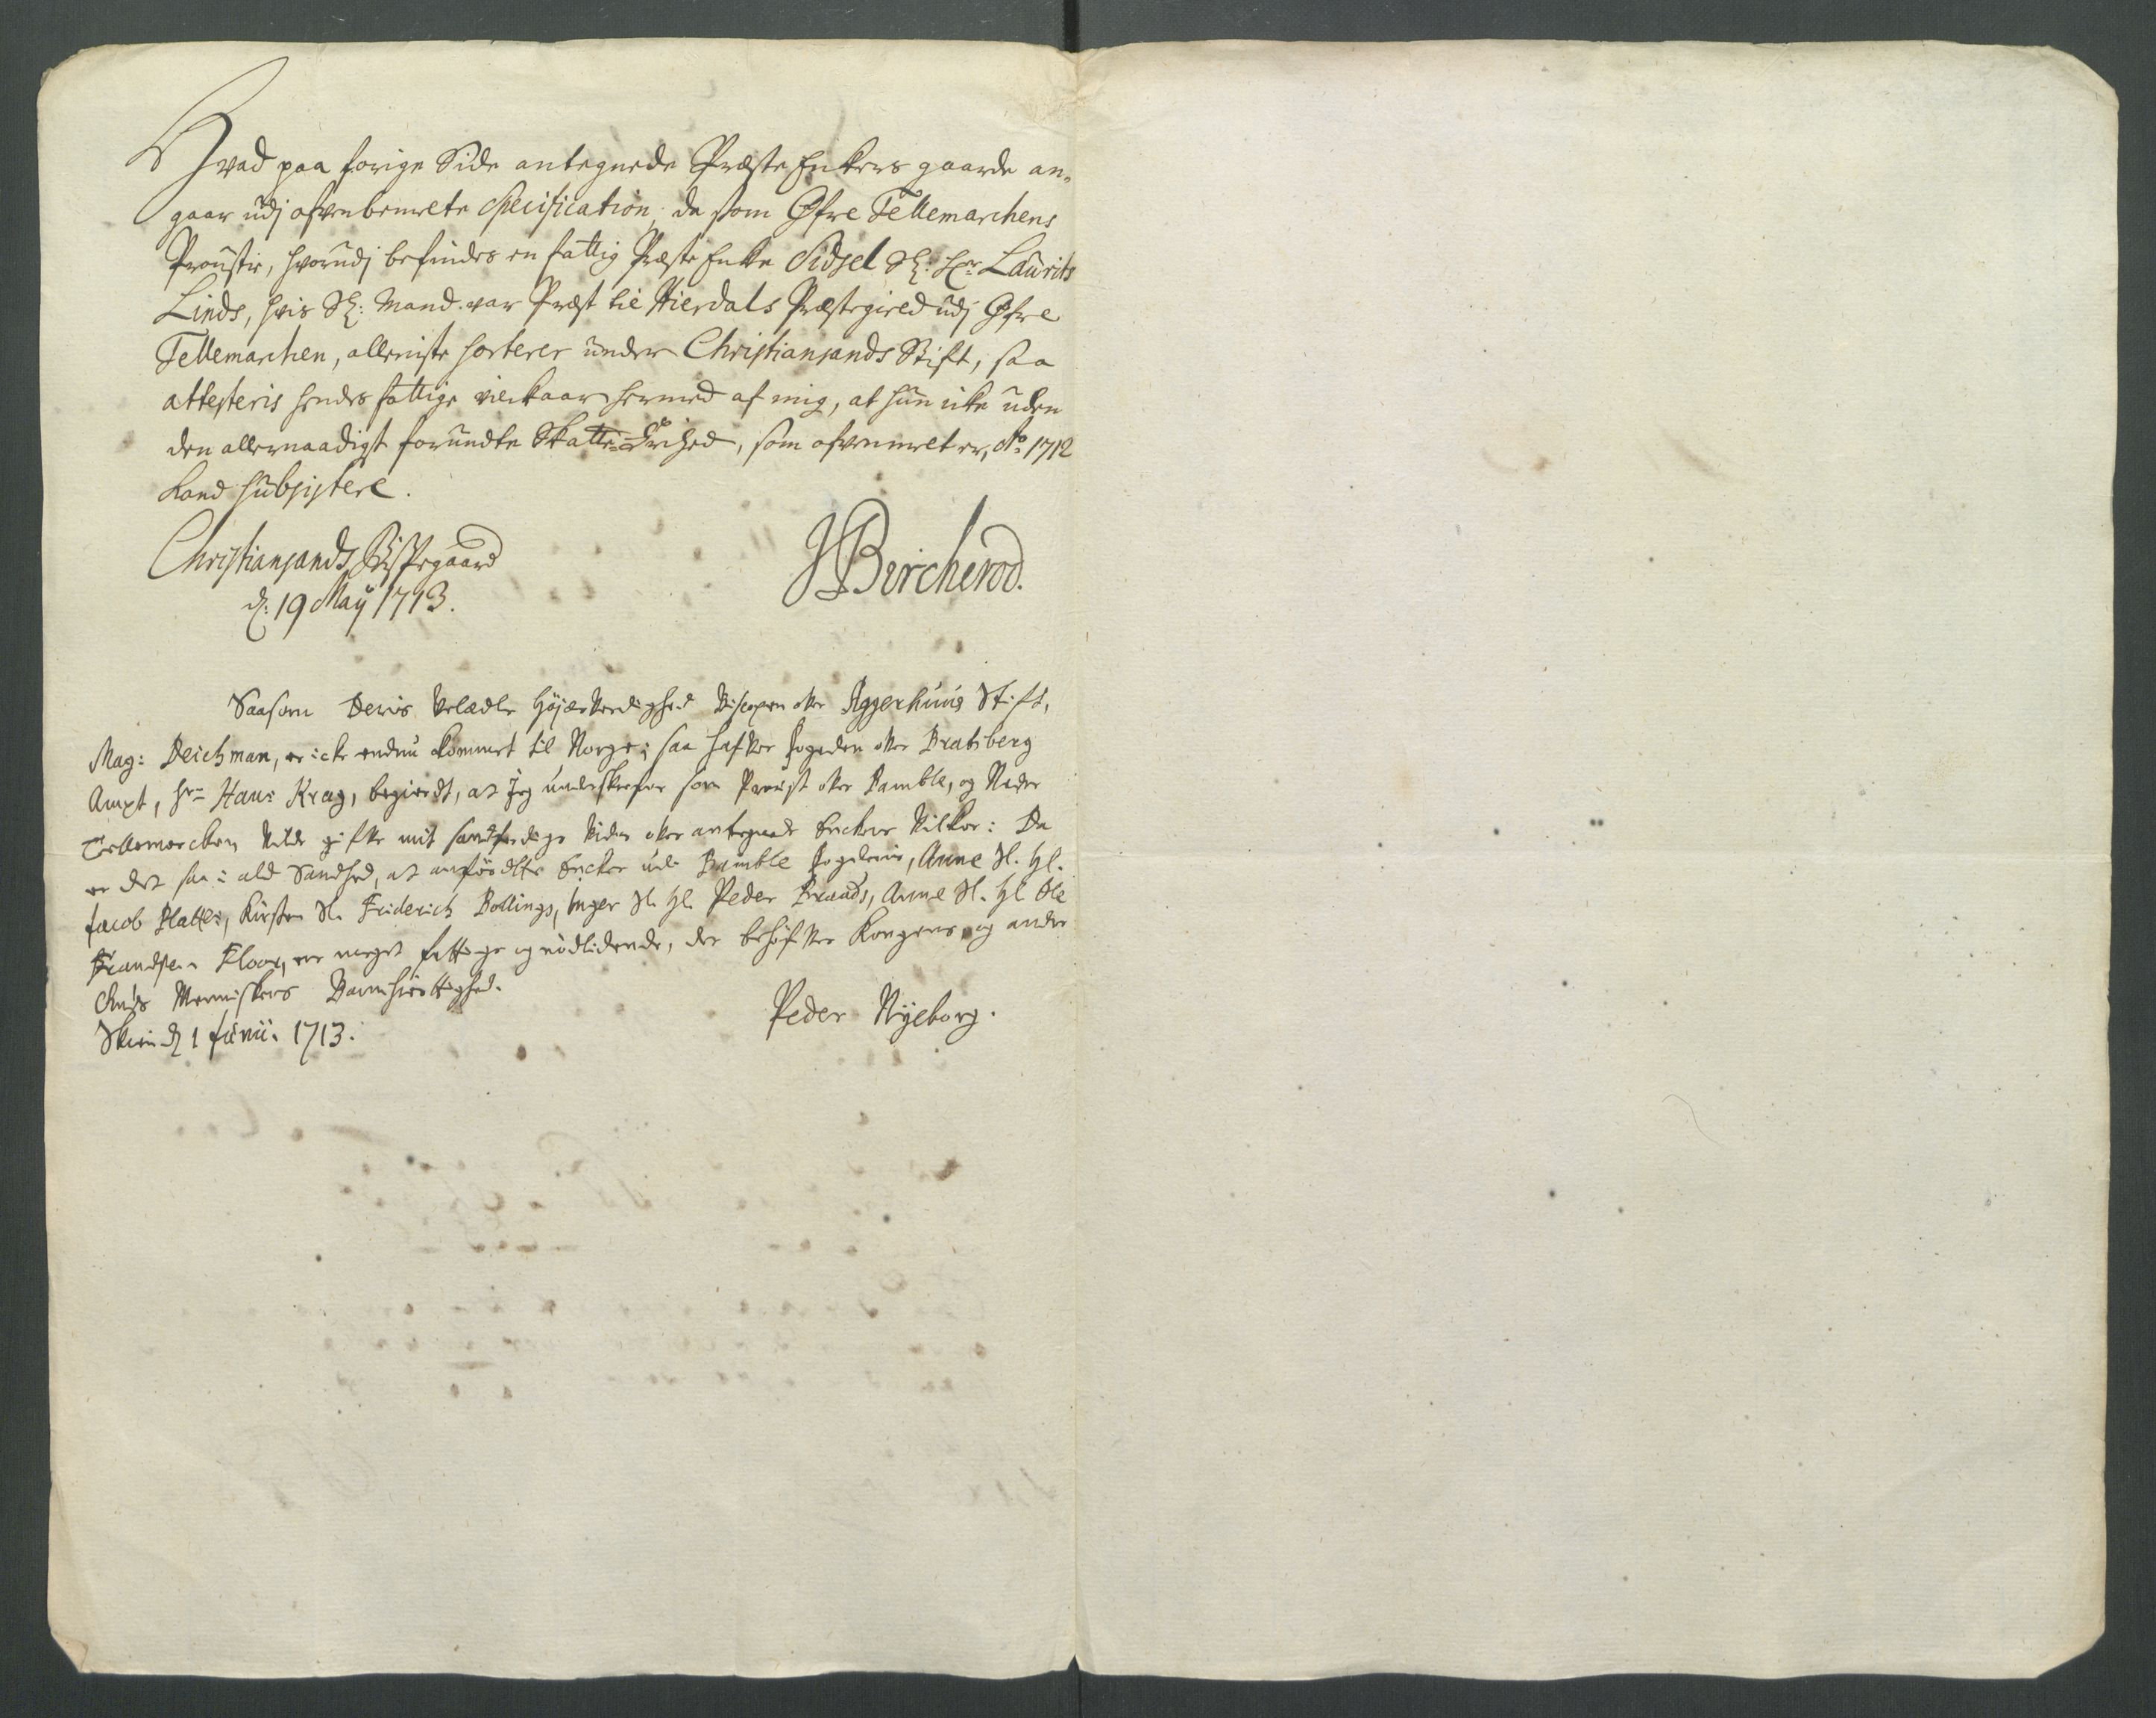 Hvad paa forige Side antegnede Præste Enkers gaarde an-
gaar udj ofvenbemelte Specification, da som Øfre Tellemarchens
Proustie, hvorudj befindes en fattig Præste Enke Sidsel Sl: Hr: Laurits
Linds, hvis Sl: Mand var Præst til Hierdals Præstegield udj Øfre
Tellemarchen, alleniste sorterer under Christiansands Stift, saa
attesteris hendes fattige vilkaar hermed af mig, at hun icke uden
den allernaadigst forundte Skatte-Frihed, som ofvenmelt er, Ao: 1712
kand subsistere.
Christiansands Bispegaard
d: 19 Maij 1713.
JBircherod.
Saasom Deris Velædle Høyærverdighed Biscopen over Aggerhuus Stift,
Mag: Deichman, er icke endnu kommet til Norge; saa hafver fogeden over Bratsberg
Ampt, Hr Hans Krag, begierdt, at Jeg underskrefne som Proust over Bamble, og Neder
Tellemarcken vilde gifve mit sandferdige vidne over antegnede Enckers Vilkor: Da
er det saa i ald Sandhed, at anførdte Encker udi Bamble fogderie, Anne Sl. Hl.
Jacob Platts, Kirsten Sl. Friderich Bollings, Inger Sl. Hl. Peder Brands, Anne Sl. Hl Ole
Frandsen Floor, ere meget fattige og nødlidende, der behøfver Kongens og andre
Menniskers Barmhiertighed.
Skien d 1 Junii. 1713.
Peder Nyeborg.